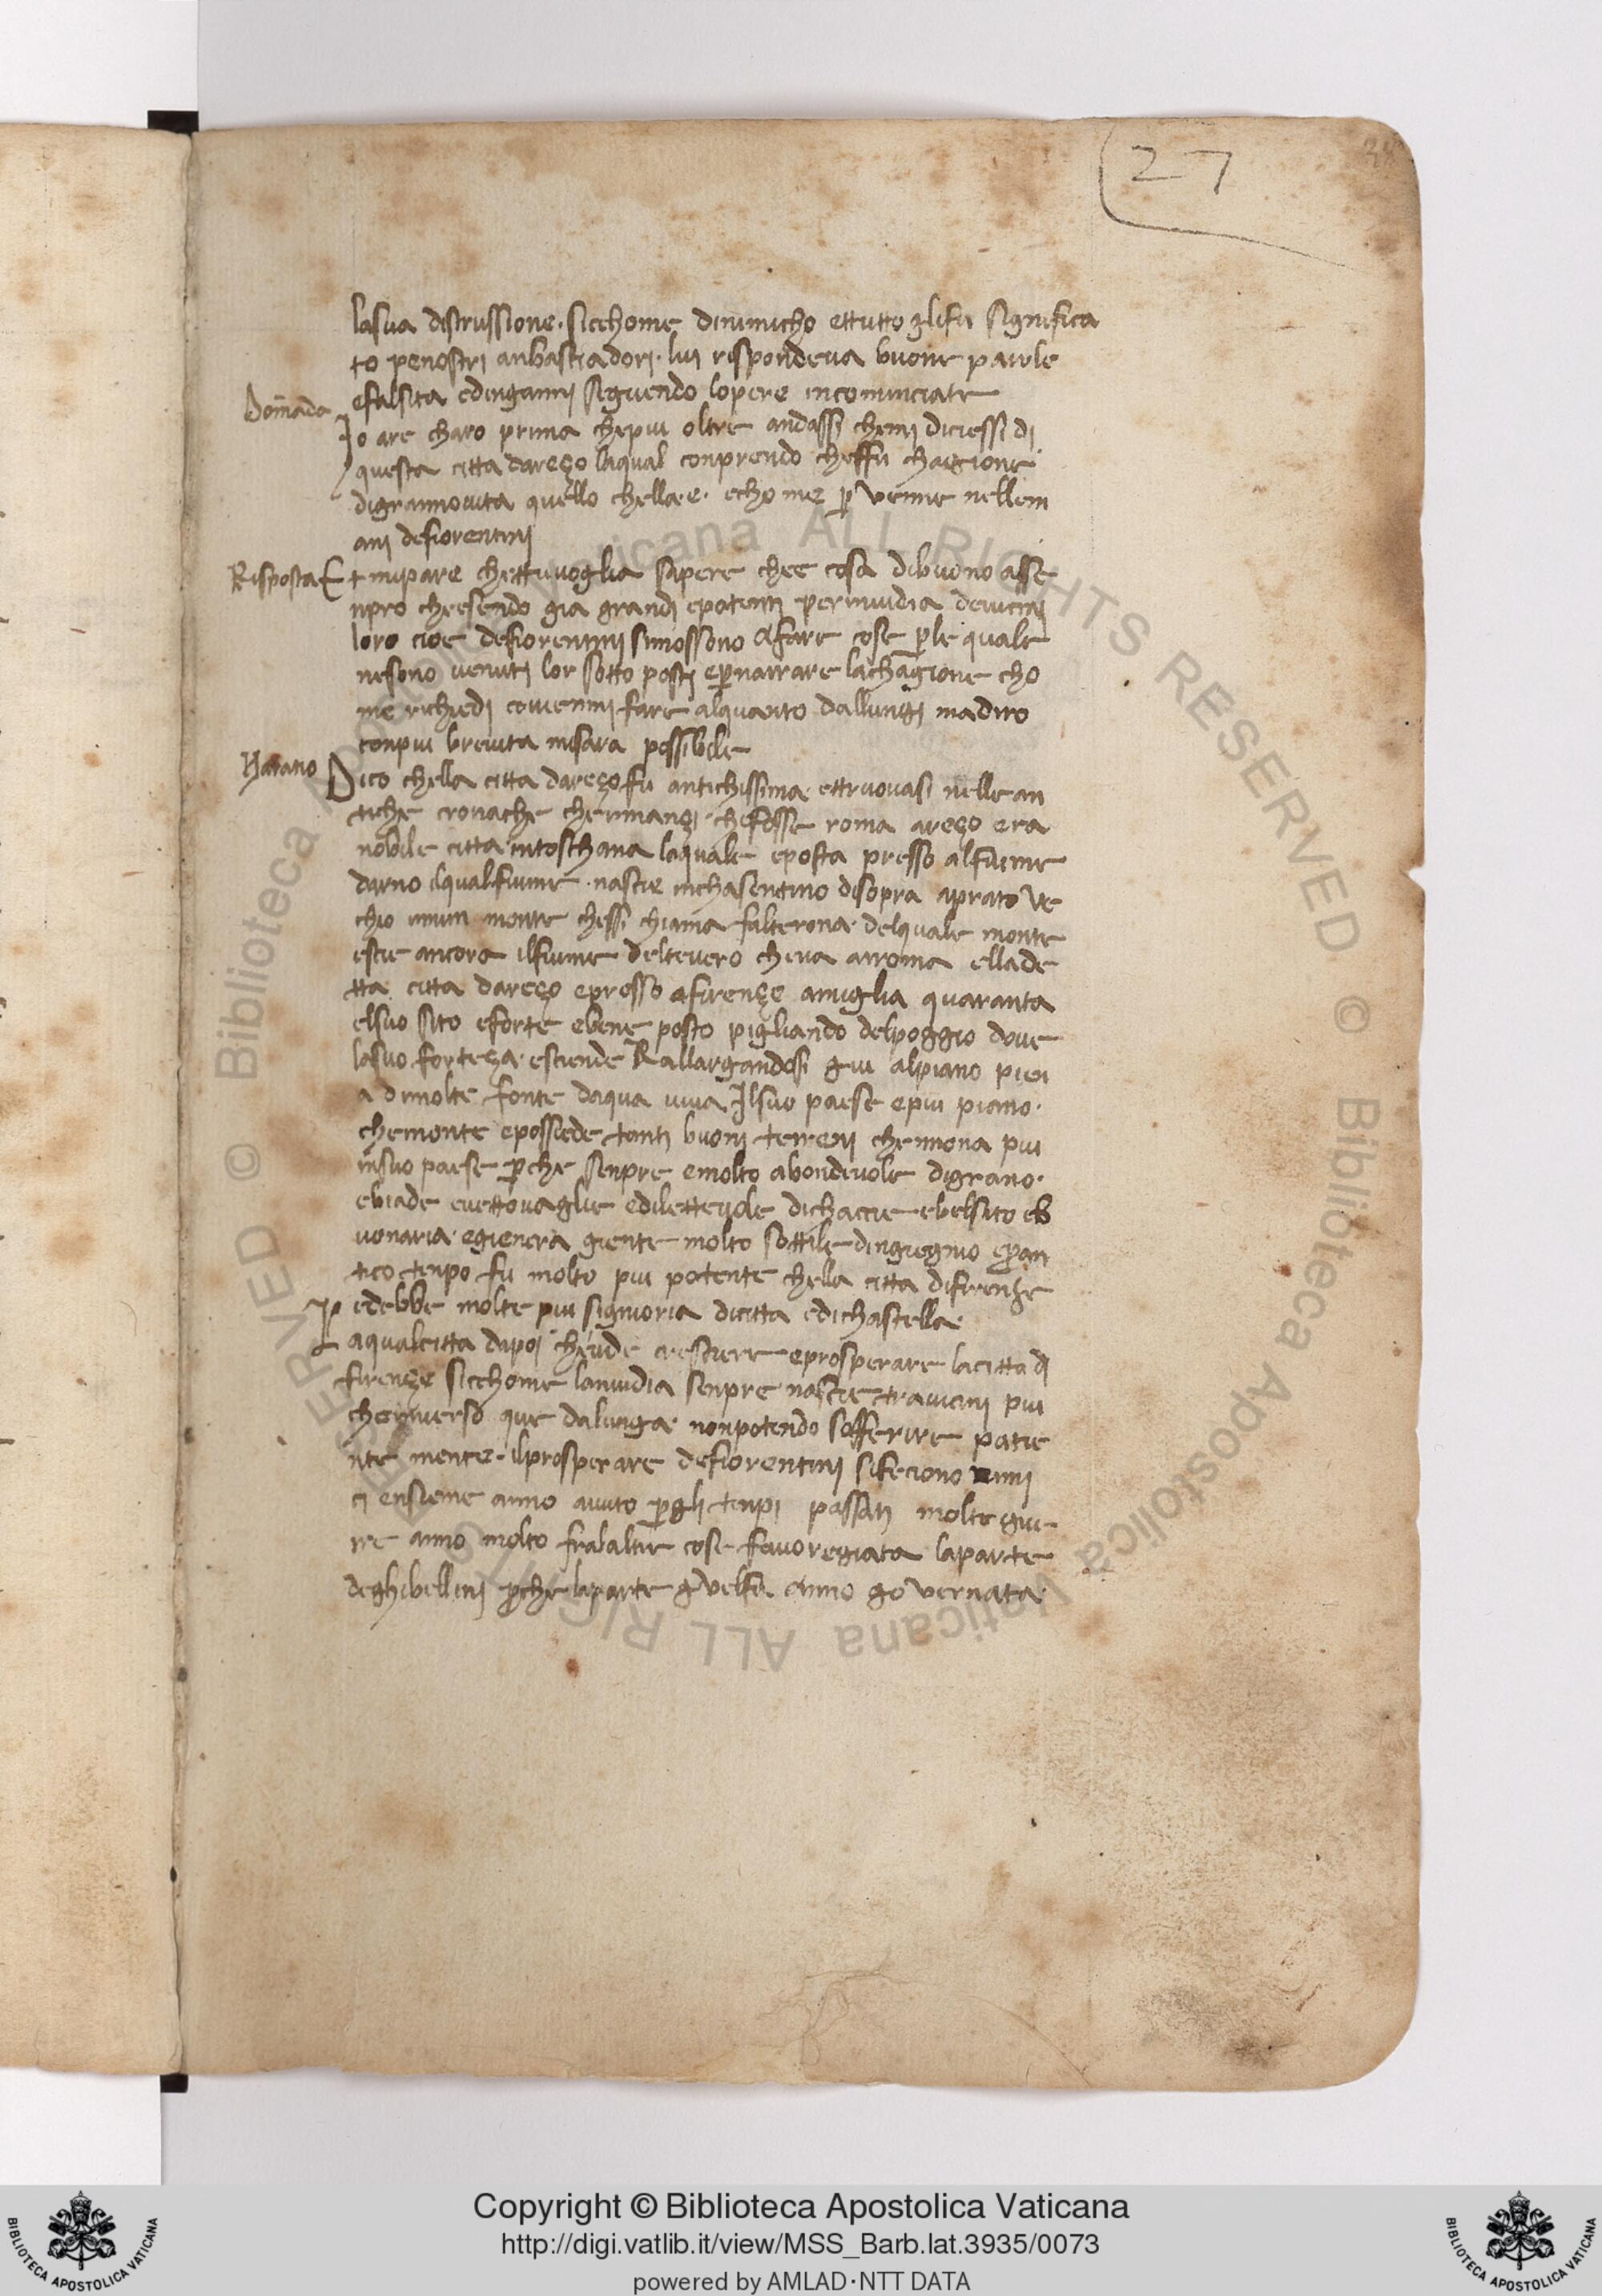 27
lasua distrussione · sicchome dinimicho ettutto glifu significa
to penostri anbasciadori · lui rispondeva buone parole
efalsita edinganni seguendo lopere incominciate
Domāda
Io are charo prima chepiu oltre andassi chemi diciessi di
questa citta dareço laqual conprendo cheffu chagione
digrannovita quello chella e · echome p venne nellem
ani defiorentini
Risposta
Et mipare chettuvoglia sapere chee cosa dibuono asse
npro cheesendo gia grandi epotenti perinvidia devicini
loro cioe defiorentini simossono afare cose ple quale
nesono venuti lor sotto posti epnarrare lachagione cho
me richiedi coviemmi fare alquanto dallungi madiro
conpiu brevita misara possibile
Narano
Dico chella citta dareço fu antichissima ettruovasi nellean
tiche cronache chennanzi · chefosse roma areço era
nobile citta intoschana laquale eposta presso alfiume
darno ilqual fiume · nascie inchasentino disopra aprato ve
chio innun monte chessi chiama falterona · delquale monte
escie ancora ilfiume deltevero cheva arroma ellade
tta citta dareço epresso afirençe amiglia quaranta
elsuo sito eforte ebene posto pigliando delpoggio dove
lasuo forteça · esciende Rallargandosi giu alpiano pien
a dimolte fonte daqua viva Ilsuo paese epiu piano ·
chemonte epossiede tanti buoni terreni chennona piu
insuo paese pche senpre emolto abondevole digrano ·
ebiade evettovaglie edilettevole dichaccie ebelsito eb
uonaria · egienera giente molto sottile dingiegnio epan
tico tenpo fu molto piu potente chella citta difirenze
edebbe molte piu signioria dicitta edichastella ·
Laqualcitta dapoi chevide cresciere eprosperare lacitta di
firençe sicchome lanvidia senpre nascie travicini piu
cheinverso que dalunga · nonpotendo sofferire patie
nte mente · ilprosperare defiorentini sifeciono nimi
ci ensieme anno avuto pgli tenpi passati molte gue
rre anno molto fralaltre cose favoregiata laparte
deghibellini pche laparte guelfa anno governata ·
Copyright © Biblioteca Apostolica Vaticana
http://digi.vatlib.it/view/MSS_Barb.lat.3935/0073
powered by AMLAD·NTT DATA
BIBLIOTECA APOSTOLICA VATICANA
BIBLIOTECA APOSTOLICA VATICANA
© Biblioteca Apostolica Vaticana ALL RIGHTS RESERVED
© Biblioteca Apostolica Vaticana ALL RIGHTS RESERVED